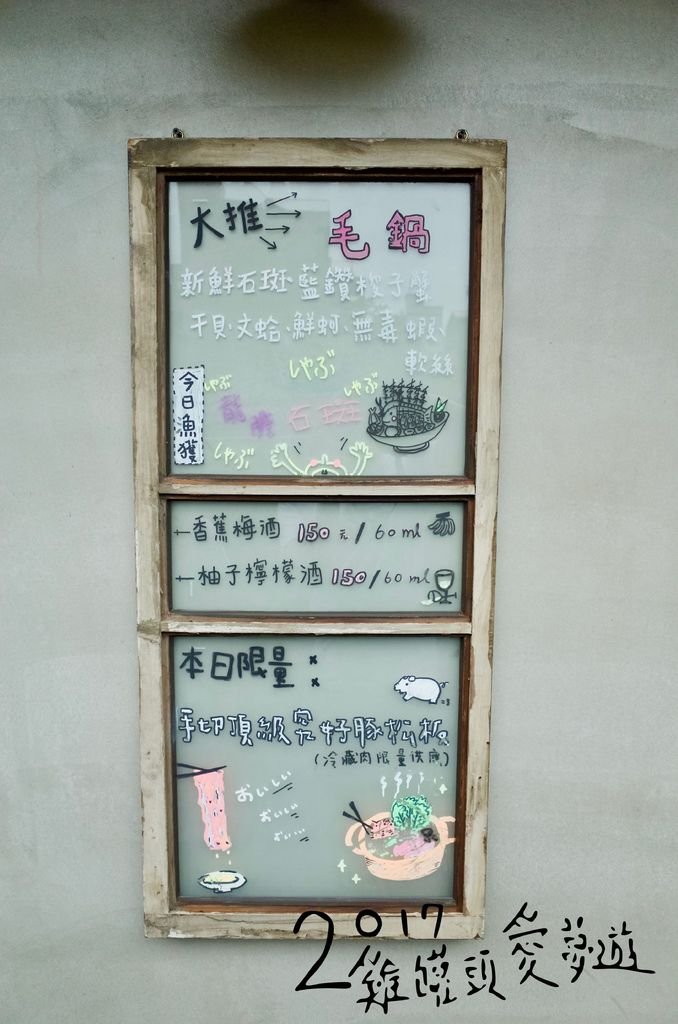 大推
毛鍋
新鮮石斑、藍鑽梭子蟹
干貝、文蛤、鮮蚵、無毒蝦、
軟絲
しゃぶ
しゃぶ
しゃぶ
今日漁獲
龍膽石斑
しゃぶ
香蕉梅酒 150元/60ml
柚子檸檬酒 150/60ml
本日限量:
手切頂級究好豚松板
(冷藏肉限量供應)
おいしい
おいしい
おいしい
2017
雞罐頭愛夢遊